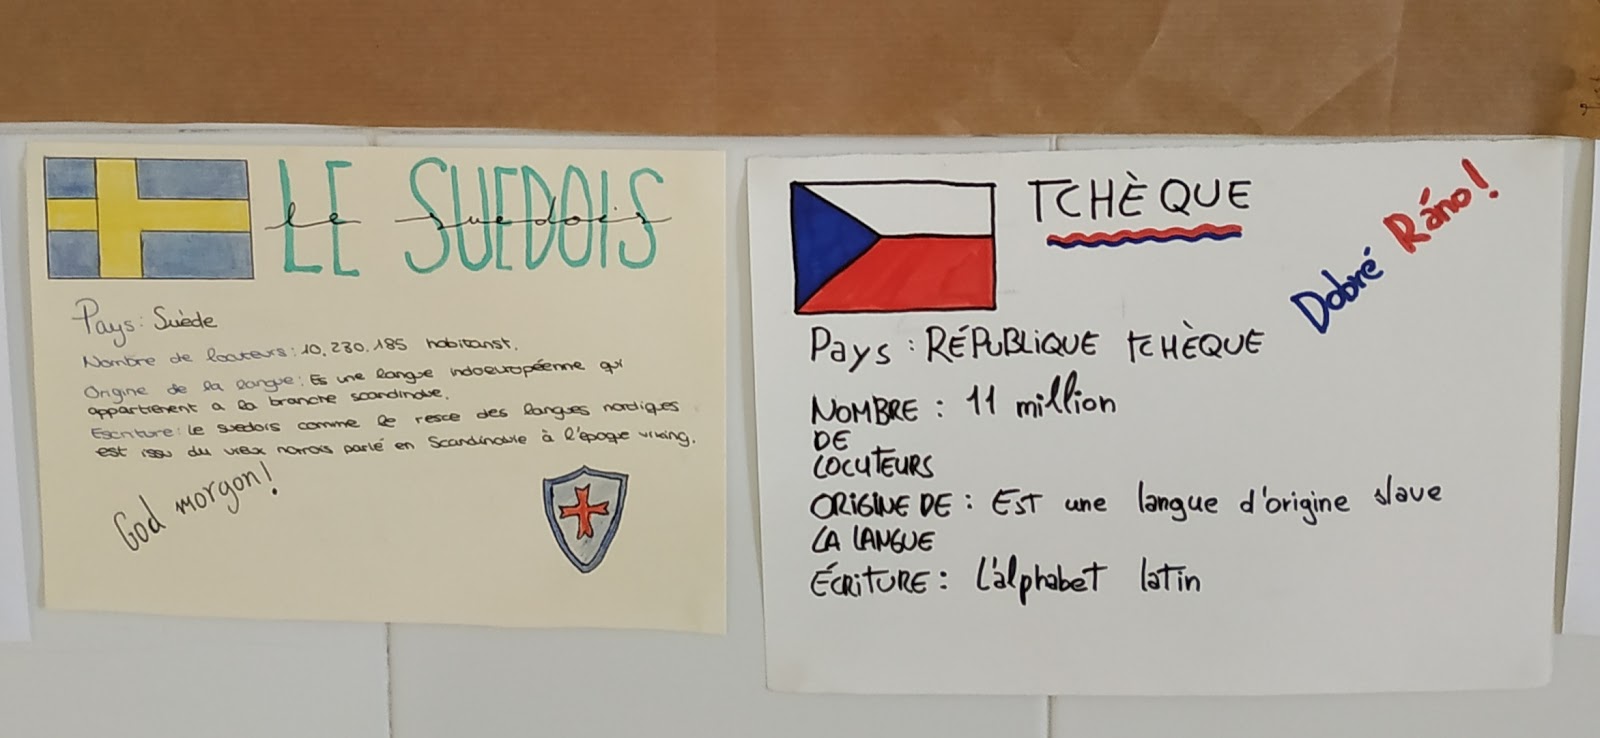 LE SUEDOIS
le suedois
Pays: Suède
Nombre de locuteurs: 10.230.185 habitanst.
Origine de la langue: Es une langue indoeuropéenne qui
appartienent a la branche scandinave.
Escriture: le suedois comme le resce des langues nordiques
est issu du vieux norrois parlé en Scandinavie à l'époque viking.
God morgon!
TCHÈQUE
Dobré Ráno!
Pays: RÉPUBLIQUE TCHÈQUE
NOMBRE: 11 million
DE
LOCUTEURS
ORIGINE DE: EST une langue d'origine slave
LA LANGUE
ÉCRITURE: L'alphabet latin